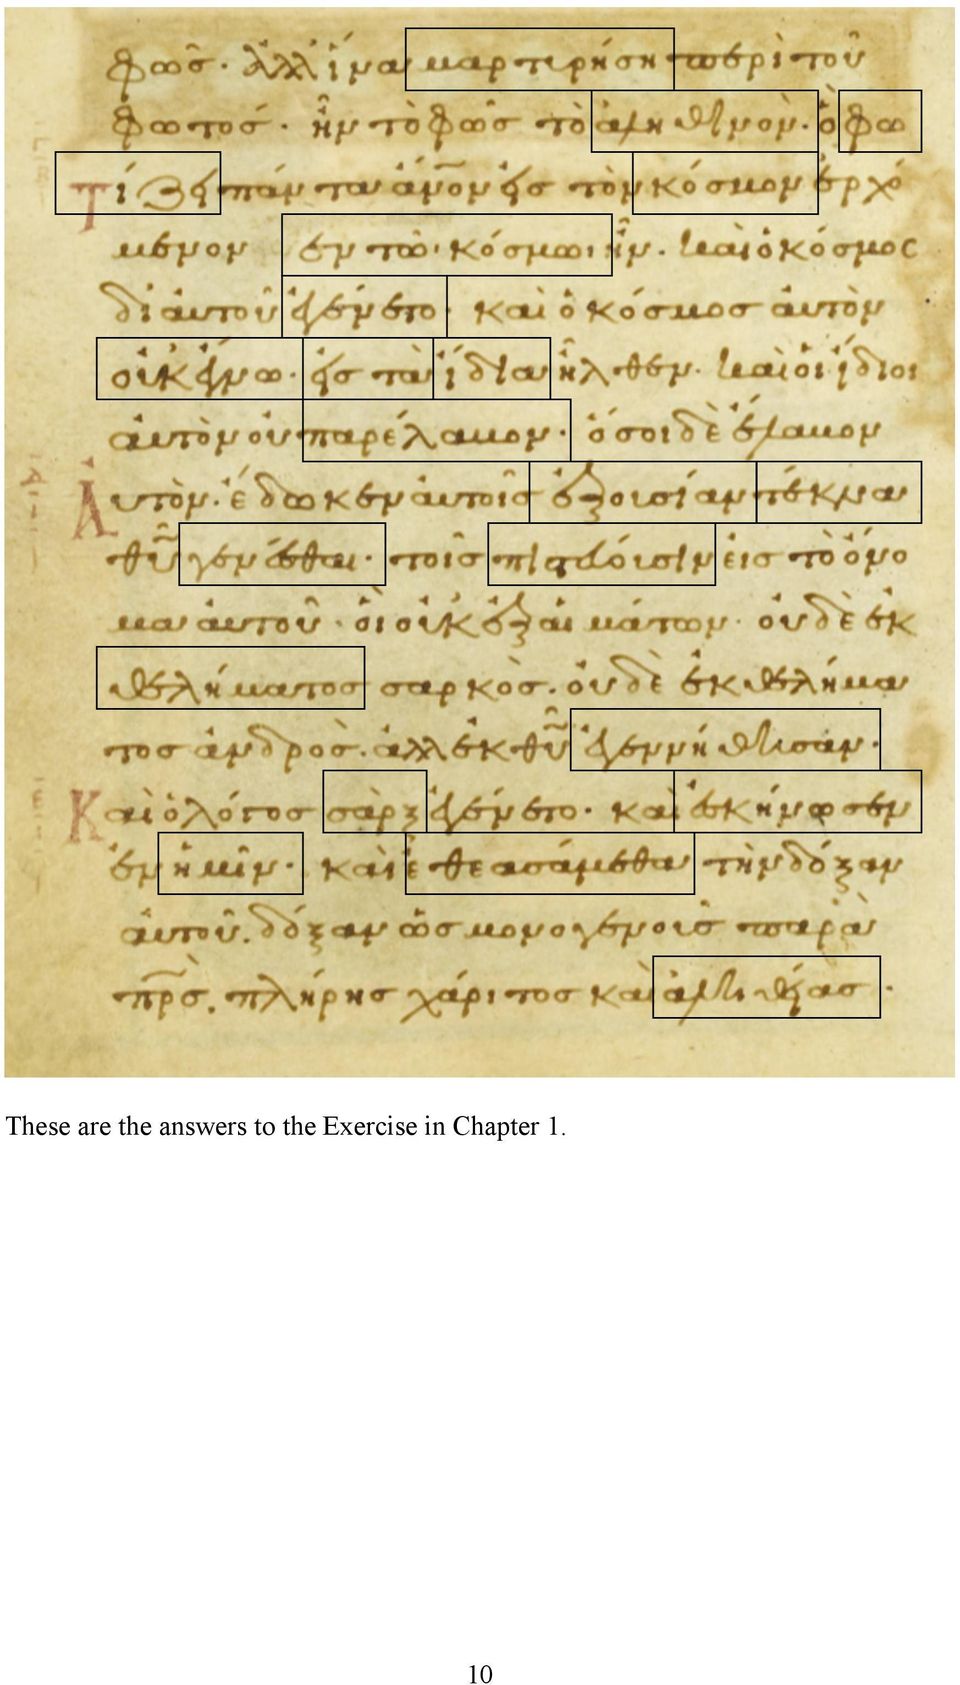 φῶσ· ἀλλ' ἵνα μαρτυρήση περὶ τοῦ
φωτοσ· ἦν τὸ φῶσ τὸ ἀληθινὸν· ὃ φω
τίζει πάντα ἄνον εἰσ τὸν κόσμον ἐρχό
μενον ἐν τῶ κόσμωι ἦν. καὶ ὁ κόσμος
δι' αὐτοῦ ἐγένετο· καὶ ὁ κόσμοσ αὐτὸν
οὐκ ἔγνω· εἰσ τὰ ἴδια ἦλθεν. καὶ οἱ ἴδιοι
αὐτὸν οὐ παρέλαβον· ὅσοι δὲ ἔλαβον
Αὐτὸν· ἔδωκεν αὐτοῖσ ἐξουσίαν τέκνα
θῦ γενέσθαι· τοῖσ πιστεύουσιν εἰσ τὸ ὄνο
μα αὐτοῦ· οἳ οὐκ ἐξ αἱμάτων· οὐδὲ ἐκ
θελήματοσ σαρκὸσ. οὐδὲ ἐκ θελήμα
τοσ ἀνδροὸσ. ἀλλ' ἐκ θῦ ἐγεννήθησαν·
Καὶ ὁ λόγοσ σὰρξ ἐγένετο· καὶ ἐσκήνωσεν
ἐν ἡμῖν· καὶ ἐθεασάμεθα τὴν δόξαν
αὐτοῦ. δόξαν ὡσ μονογενοῦσ παρὰ
πρσ. πλήρησ χάριτοσ καὶ ἀληθείασ·
These are the answers to the Exercise in Chapter 1.
10